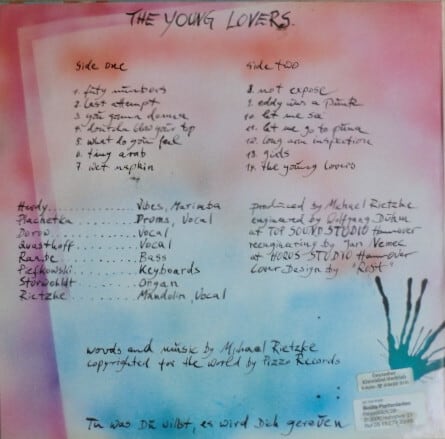 THE YOUNG LOVERS
Side one
1. fifty numbers
2. last attempt
3. you gonna donna
4. doutcha blow your top
5. what do you feel
6. tiny arab
7. wet napkin
Side two
8. not expose
9. eddy was a punk
10. let me sa
11. let me go to puma
12. long arm inspection
13. girls
14. the young lovers
Hardy.............Vibes, Marimba
Plachetka.........Drums, Vocal
Dorow.............Vocal
Quasthoff.........Vocal
Raabe.............Bass
Piefkowski........Keyboards
Storwohldt........Organ
Rietzke...........Mandolin, Vocal
produced by Michael Rietzke
engineered by Wolfgang Dühm
at TOP SOUND STUDIO Hannover
reengineering by Jan Nemec
at HORUS STUDIO Hannover
Cover Design by "Rest"
words and music by Michael Rietzke
copyrighted for the world by Pizzo Records
Tu was DU willst, es wird Dich gereuen